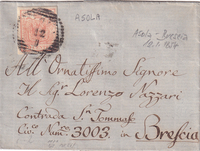 ASOLA
Asola - Brescia
All' Ornatissimo Signore
Il Sig.r Lorenzo Nazzari
Contrada Sn Tommaso
Civo. Numo. 3003. in Brescia